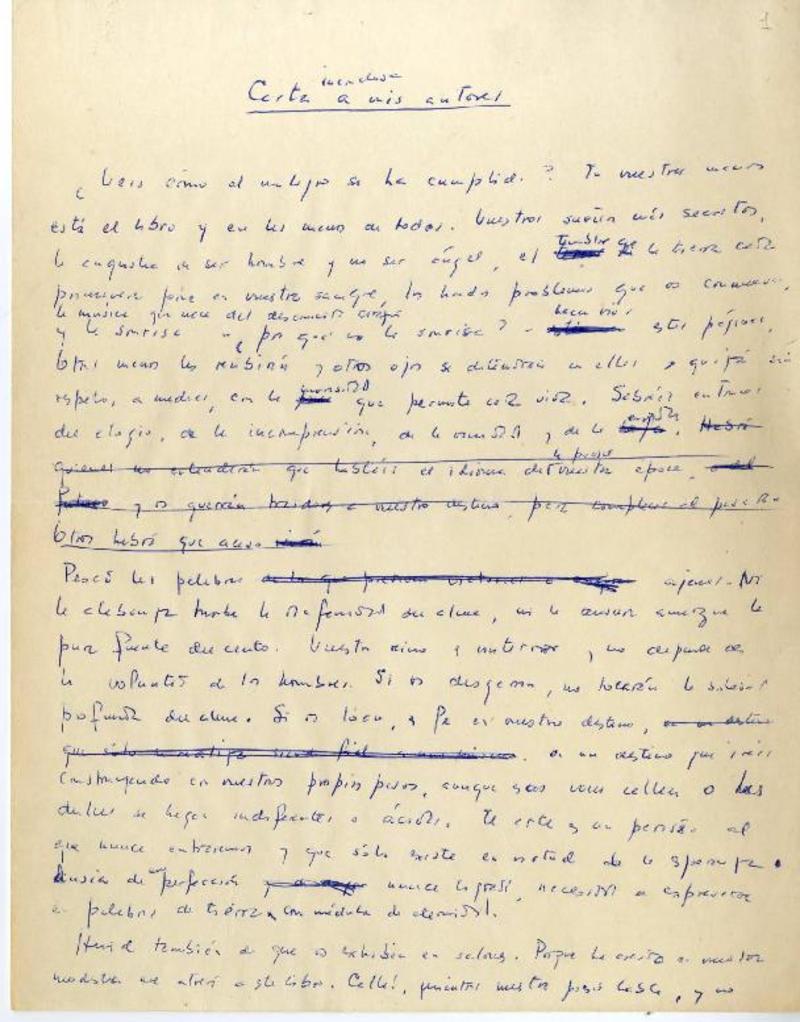 1
Carta a mis autores
¿Veis cómo el milagro se ha cumplido? En vuestras manos
está el libro y en las manos de todos. Vuestros sueños más secretos,
la angustia de ser hombre y no ser ángel, el temblor que la tierra cada
primavera pone en vuestra sangre, los hondos problemas que os conmueven,
la música que nace del desconcierto
y la sonrisa - ¿por qué no la sonrisa? - hacen vivir estas páginas.
Otras manos las recibirán y otros ojos se detendrán en ellas, quizá sin
respeto, a medias, con la que permite esta vida. Sabréis entonces
del elogio, de la incomprensión, de la y de la envidia. Habrá
quienes no entenderán que habléis el idioma de vuestra época,
futuro y os querrán traidores a vuestro destino, para
Otros habrá que acaso
Pesad las palabras ajenas. Ni
la alabanza turbe la serenidad del alma, ni la censura amargue la
pura fuente del canto. Vuestro reino es interior y no depende de
la voluntad de los hombres. Si os desgarran, no tocarán la soledad
profunda del alma. Si os loan, es fe en vuestro destino, en un destino
que sólo siendo fiel a uno mismo. en un destino que iréis
construyendo con vuestros propios pasos, aunque las voces callen o las
dulces se hagan indiferentes o ácidas. El arte es un paraíso al
que nunca entraremos y que sólo existe en virtud de la esperanza.
Ansia de una perfección nunca lograda, necesidad de expresarse
en palabras de tierra con médula de eternidad.
Huid también de que os exhiban en salones. Porque he creído en vuestra
modestia me atreví a este libro. Callad, mientras vuestra poesía hable, y no